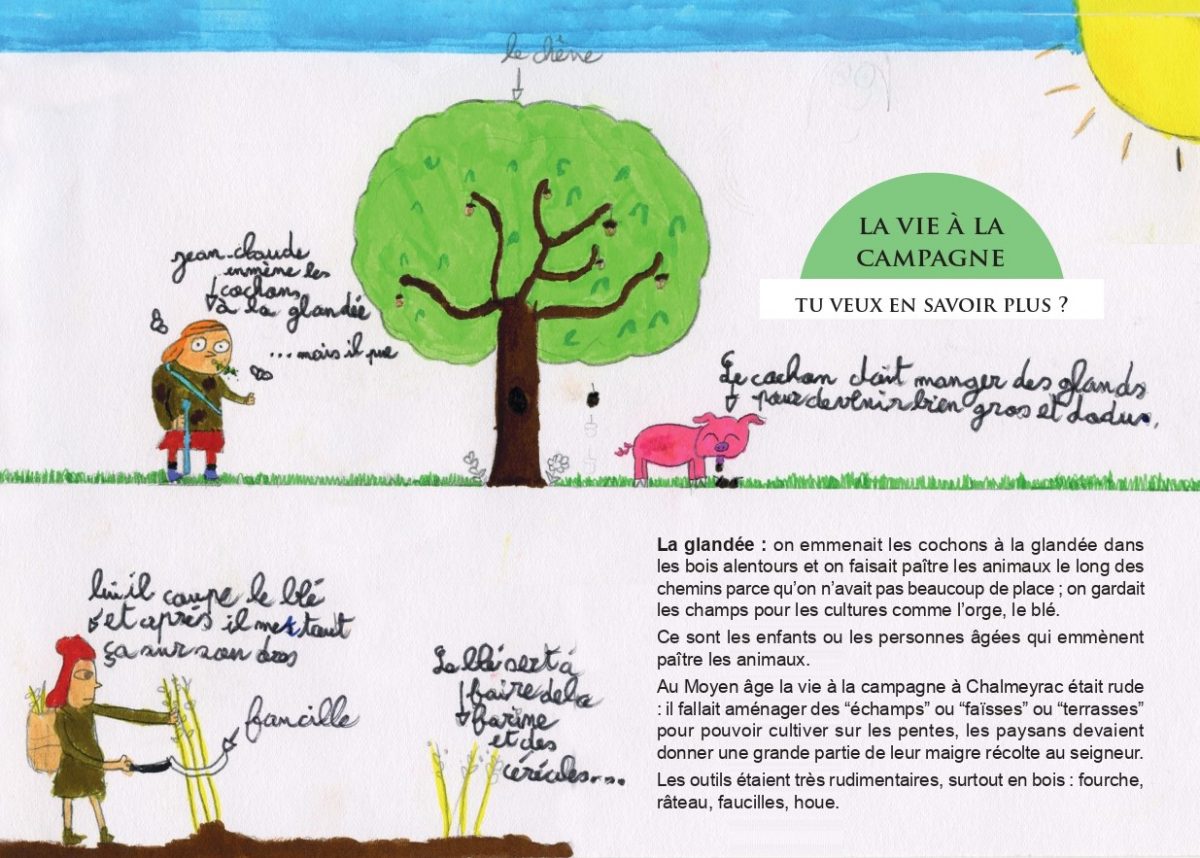 le chêne
LA VIE À LA
CAMPAGNE
TU VEUX EN SAVOIR PLUS ?
jean-claude
enmène les
cochons
à la glandée
...mais il pue
Le cochon doit manger des glands
pour devenir bien gros et dodu.
La glandée : on emmenait les cochons à la glandée dans
les bois alentours et on faisait paître les animaux le long des
chemins parce qu’on n’avait pas beaucoup de place ; on gardait
les champs pour les cultures comme l’orge, le blé.
Ce sont les enfants ou les personnes âgées qui emmènent
paître les animaux.
Au Moyen âge la vie à la campagne à Chalmeyrac était rude
: il fallait aménager des “échamps” ou “faïsses” ou “terrasses”
pour pouvoir cultiver sur les pentes, les paysans devaient
donner une grande partie de leur maigre récolte au seigneur.
Les outils étaient très rudimentaires, surtout en bois : fourche,
râteau, faucilles, houe.
lui il coupe le blé
et après il met tout
ça sur son dos
faucille
Le blé sert à
faire de la
farine
et des
céréales....